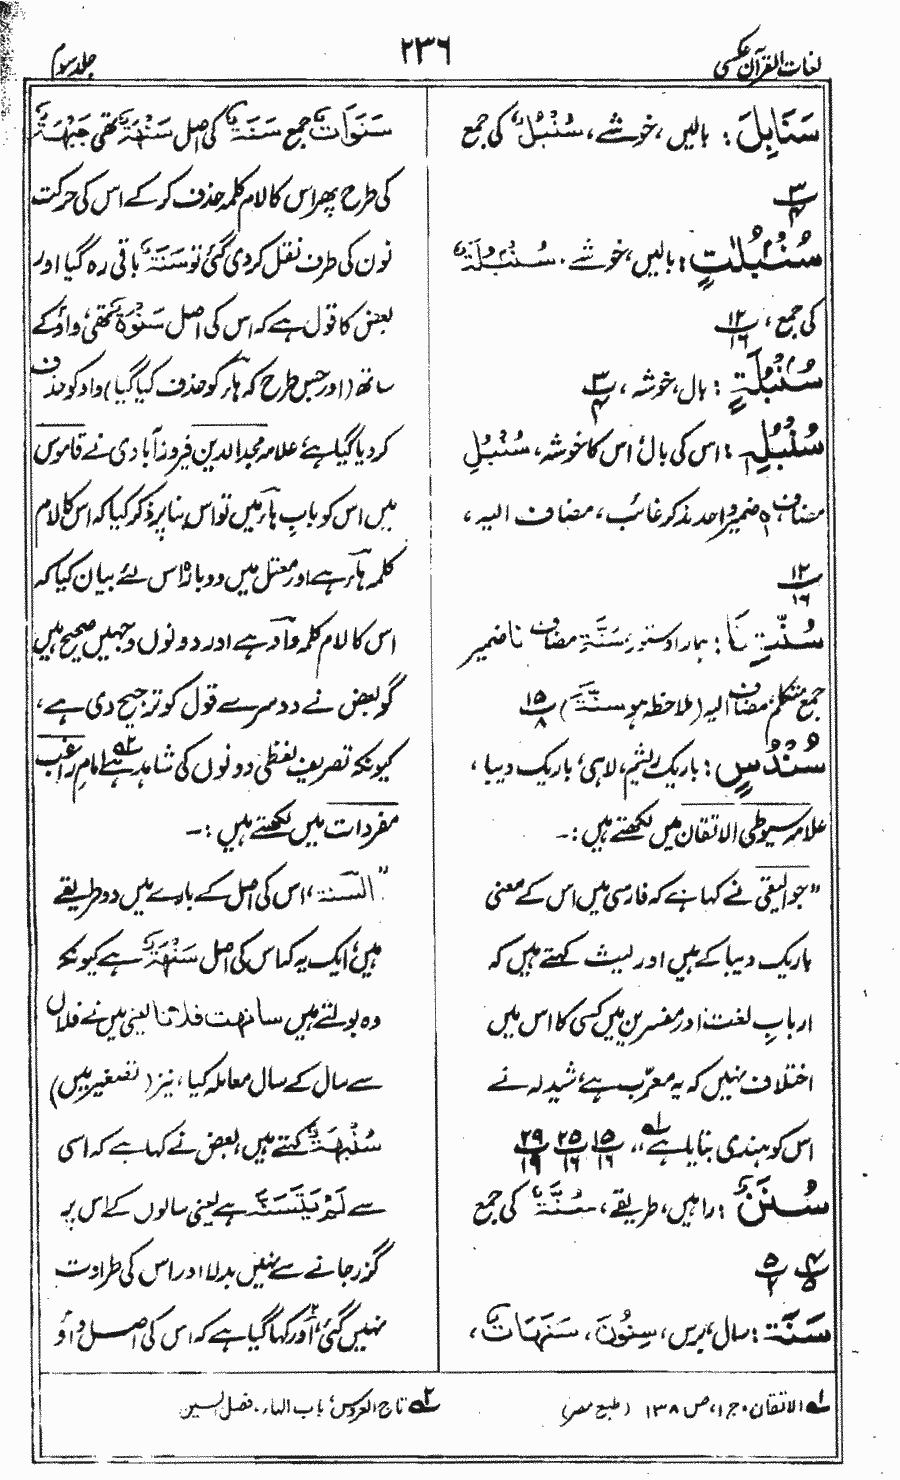 لغات القرآن عکسی
۲۳۶
جلد سوم
سَنَابِلَ : بالیں، خوشے، سُنْبُلٌ کی جمع
۳/۴
سُنْبُلٰتٍ : بالیں، خوشے، سُنْبُلَةٌ
کی جمع، ۱۲/۱۶
سُنْبُلَةٍ : بال، خوشہ، ۳/۴
سُنْبُلِهٖ : اس کی بال، اس کا خوشہ، سُنْبُلِ
مضاف ہٖ ضمیر واحد مذکر غائب، مضاف الیہ،
۱۲/۱۶
سُنَّتِنَا : ہمارا دستور سُنَّةِ مضاف نا ضمیر
جمع متکلم مضاف الیہ (ملاحظہ ہو سُنَّةَ) ۱۵/۸
سُنْدُسٍ : باریک ریشم، لاہی، باریک دیبا،
علامہ سیوطی الاتقان میں لکھتے ہیں :-
"جوالیقی نے کہا ہے کہ فارسی میں اس کے معنی
باریک دیبا کے ہیں اور لیث کہتے ہیں کہ
اربابِ لغت اور مفسرین میں کسی کا اس میں
اختلاف نہیں کہ یہ معرّب ہے، شیدلہ نے
اس کو ہندی بتایا ہے لہ،، ۱۵/۱۶ ۲۵/۱۶ ۲۹/۱۹
سُنَنٌ : راہیں، طریقے، سُنَّةٌ کی جمع
۴/۵ ۵/۲
سَنَةٍ : سال، برس، سِنُوْنَ، سَنَهَاتٌ،
سَنَوَاتٌ جمع سَنَةٌ کی اصل سَنْهَةٌ تھی جَبْهَةٌ
کی طرح پھر اس کا لام کلمہ حذف کر کے اس کی حرکت
نون کی طرف نقل کر دی گئی تو سَنَةٌ باقی رہ گیا اور
بعض کا قول ہے کہ اس کی اصل سَنْوَةٌ تھی، واؤ کے
ساتھ (اور جس طرح کہ ہاء کو حذف کیا گیا) واو کو حذف
کر دیا گیا ہے، علامہ مجد الدین فیروز آبادی نے قاموس
میں اس کو بابِ ہاء میں تو اس بنا پر ذکر کیا کہ اس کا لام
کلمہ ہاء ہے اور معتل میں دوبارہ اس لئے بیان کیا کہ
اس کا لام کلمہ واو ہے اور دونوں وجہیں صحیح ہیں
گو بعض نے دوسرے قول کو ترجیح دی ہے،
کیونکہ تصریف لفظی دونوں کی شاہد ہے ۲ہ امام راغب
مفردات میں لکھتے ہیں :-
"السنة، اس کی اصل کے بارے میں دو طریقے
ہیں، ایک یہ کہ اس کی اصل سَنْهَةٌ ہے کیونکہ
وہ بولتے ہیں سانهت فلانا یعنی میں نے فلاں
سے سال کے سال معاملہ کیا، نیز (تصغیر میں)
سُنَيْهَةٌ کہتے ہیں، بعض نے کہا ہے کہ اسی
سے لَمْ يَتَسَنَّهْ ہے یعنی سالوں کے اس پر
گزر جانے سے نہیں بدلا اور اس کی طراوت
نہیں گئی، اور کہا گیا ہے کہ اس کی اصل واؤ
۱ہ الاتقان، ج ۱، ص ۱۳۸ (طبع مصر)
۲ہ تاج العروس، باب الہاء، فصل السین